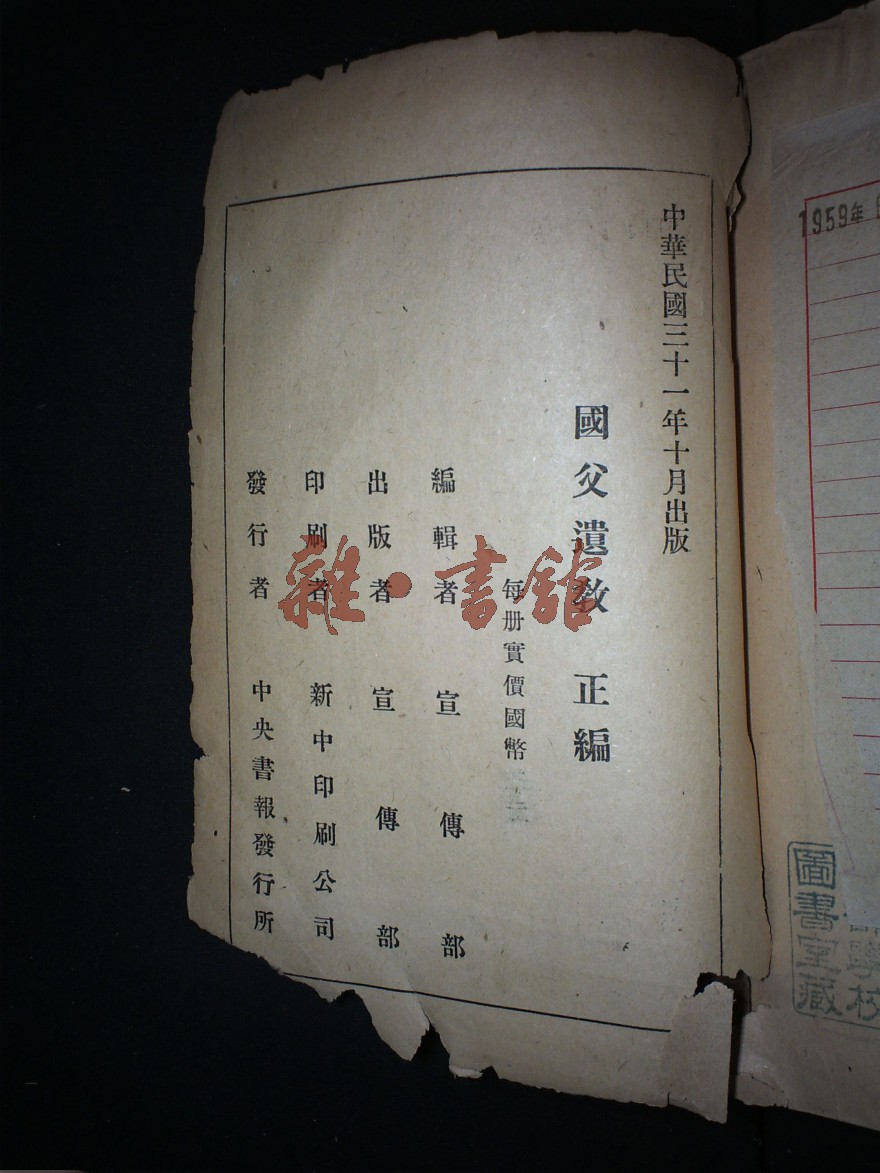 中華民國三十一年十月出版
國父遺教 正編
每册實價國幣
編輯者 宣傳部
出版者 宣傳部
印刷者 新中印刷公司
發行者 中央書報發行所
雜·書舘
1959年
學校
圖書室藏